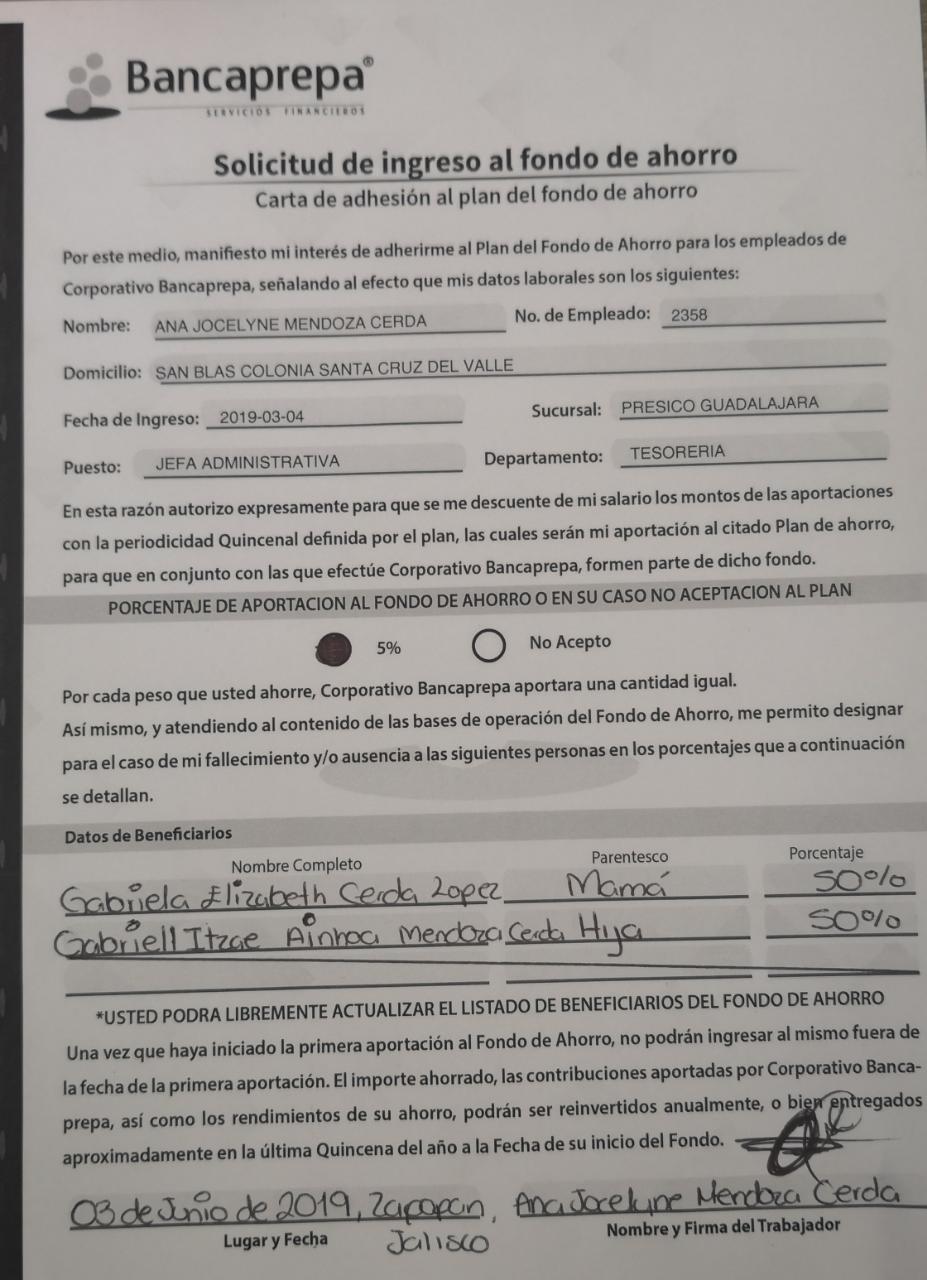 Bancaprepa®
SERVICIOS FINANCIEROS
Solicitud de ingreso al fondo de ahorro
Carta de adhesión al plan del fondo de ahorro
Por este medio, manifiesto mi interés de adherirme al Plan del Fondo de Ahorro para los empleados de
Corporativo Bancaprepa, señalando al efecto que mis datos laborales son los siguientes:
Nombre: ANA JOCELYNE MENDOZA CERDA No. de Empleado: 2358
Domicilio: SAN BLAS COLONIA SANTA CRUZ DEL VALLE
Fecha de Ingreso: 2019-03-04 Sucursal: PRESICO GUADALAJARA
Puesto: JEFA ADMINISTRATIVA Departamento: TESORERIA
En esta razón autorizo expresamente para que se me descuente de mi salario los montos de las aportaciones
con la periodicidad Quincenal definida por el plan, las cuales serán mi aportación al citado Plan de ahorro,
para que en conjunto con las que efectúe Corporativo Bancaprepa, formen parte de dicho fondo.
PORCENTAJE DE APORTACION AL FONDO DE AHORRO O EN SU CASO NO ACEPTACION AL PLAN
5% No Acepto
Por cada peso que usted ahorre, Corporativo Bancaprepa aportara una cantidad igual.
Así mismo, y atendiendo al contenido de las bases de operación del Fondo de Ahorro, me permito designar
para el caso de mi fallecimiento y/o ausencia a las siguientes personas en los porcentajes que a continuación
se detallan.
Datos de Beneficiarios
Nombre Completo Parentesco Porcentaje
Gabriela Elizabeth Cerda Lopez Mamá 50%
Gabriell Itzae Ainhoa Mendoza Cerda Hija 50%
*USTED PODRA LIBREMENTE ACTUALIZAR EL LISTADO DE BENEFICIARIOS DEL FONDO DE AHORRO
Una vez que haya iniciado la primera aportación al Fondo de Ahorro, no podrán ingresar al mismo fuera de
la fecha de la primera aportación. El importe ahorrado, las contribuciones aportadas por Corporativo Banca-
prepa, así como los rendimientos de su ahorro, podrán ser reinvertidos anualmente, o bien entregados
aproximadamente en la última Quincena del año a la Fecha de su inicio del Fondo.
03 de Junio de 2019, Zapopan, Ana Jocelyne Mendoza Cerda
Jalisco
Lugar y Fecha Nombre y Firma del Trabajador